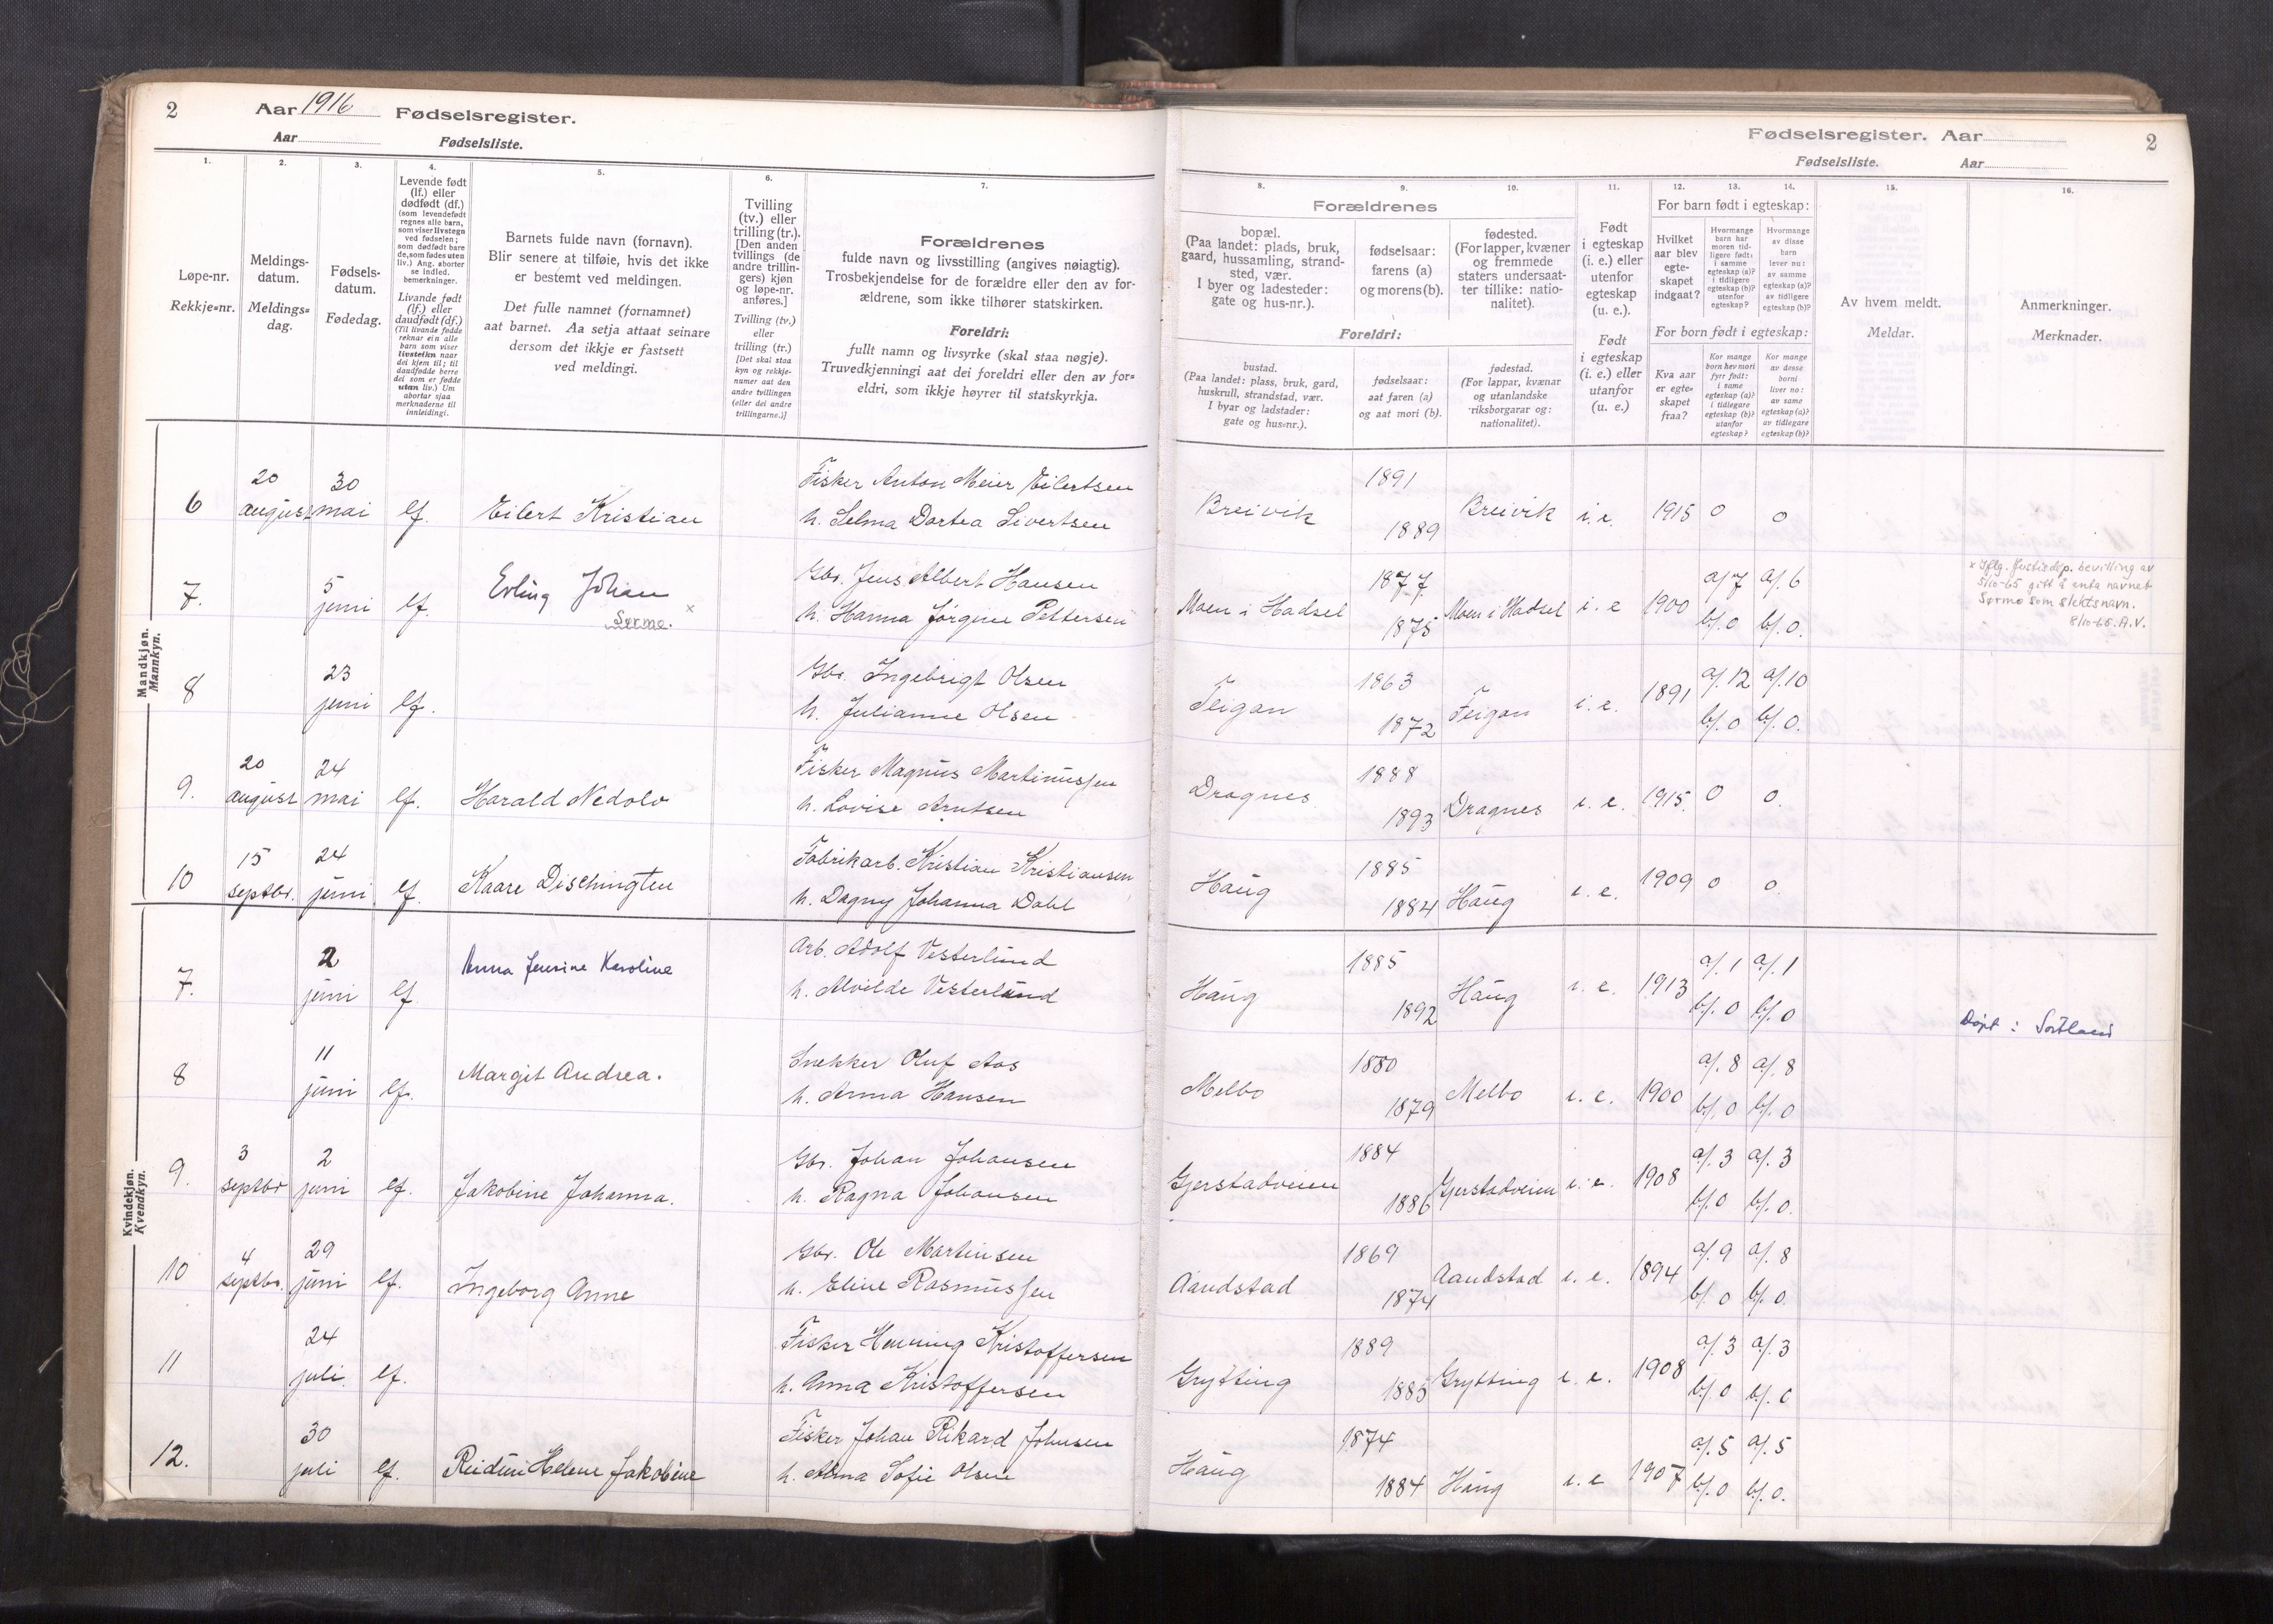 2 Aar 1916 Fødselsregister.
Aar Fødselsliste.
Fødselsregister. Aar 2
Fødselsliste. Aar
1. 2. 3. 4. 5. 6. 7.
Løpe-nr.
Rekkje-nr.
Meldings-
datum.
Meldings-
dag.
Fødsels-
datum.
Fødedag.
Levende født
(lf.) eller
dødfødt (df.)
(som levendefødt
regnes alle barn,
som viser livstegn
ved fødselen;
som dødfødt bare
de, som fødes uten
liv.) Ang. aborter
se indled.
bemerkninger.
Livande født
(lf.) eller
daudfødt (df.)
(Til livande fødde
reknar ein alle
barn som viser
livsteikn naar
dei kjem til; til
daudfødde berre
dei som er fødde
utan liv.) Um
abortar sjaa
merknaderne til
innleidingi.
Barnets fulde navn (fornavn).
Blir senere at tilføie, hvis det ikke
er bestemt ved meldingen.
Det fulle namnet (fornamnet)
aat barnet. Aa setja attaat seinare
dersom det ikkje er fastsett
ved meldingi.
Tvilling
(tv.) eller
trilling (tr.).
[Den anden
tvillings (de
andre trillin-
gers) kjøn
og løpe-nr.
anføres.]
Tvilling (tv.)
eller
trilling (tr.)
[Det skal staa
kyn og rekkje-
numer aat den
andre tvillingen
(eller dei andre
trillingarne.)]
Forældrenes
fulde navn og livsstilling (angives nøiagtig).
Trosbekjendelse for de forældre eller den av for-
ældrene, som ikke tilhører statskirken.
Foreldri:
fullt namn og livsyrke (skal staa nøgje).
Truvedkjenningi aat dei foreldri eller den av for=
eldri, som ikkje høyrer til statskyrkja.
8. 9. 10. 11. 12. 13. 14. 15. 16.
Forældrenes
bopæl.
(Paa landet: plads, bruk,
gaard, hussamling, strand-
sted, vær.
I byer og ladesteder:
gate og hus-nr.).
fødselsaar:
farens (a)
og morens (b).
fødested.
(For lapper, kvæner
og fremmede
staters undersaat-
ter tillike: natio-
nalitet).
Foreldri:
bustad.
(Paa landet: plass, bruk, gard,
huskrull, strandstad, vær.
I byar og ladstader:
gate og hus=nr.).
fødselsaar:
aat faren (a)
og aat mori (b).
fødestad.
(For lappar, kvænar
og utanlandske
riksborgarar og:
nationalitet).
Født
i egteskap
(i. e.) eller
utenfor
egteskap
(u. e.).
Født
i egteskap
(i. e.) eller
utanfor
(u. e.)
For barn født i egteskap:
Hvilket
aar blev
egte-
skapet
indgaat?
Hvormange
barn har
moren tid-
ligere født:
i samme
egteskap (a)?
i tidligere
egteskap (b)?
utenfor
egteskap?
Hvormange
av disse
barn
lever nu:
av samme
egteskap (a)?
av tidligere
egteskap (b)?
For born født i egteskap:
Kva aar
er egte-
skapet
fraa?
Kor mange
born hev mori
fyrr født:
i same
egteskap (a)?
i tidlegare
egteskap (b)?
utanfor
egteskap?
Kor mange
av desse
borni
liver no:
av same
egteskap (a)?
av tidlegare
egteskap (b)?
Av hvem meldt.
Meldar.
Anmerkninger.
Merknader.
Mandkjøn.
Mannkyn.
6 20 august 30 mai lf. Eilert Kristian Fisker Anton Meier Eilertsen
h. Selma Dortea Sivertsen Breivik 1891 1889 Breivik i. e. 1915 0 0
7. 5 juni lf. Erling Johan Gbr. Jens Albert Hansen
Sørmo. x h. Hanna Jørgine Pettersen Moen i Hadsel 1877 1875 Moen i Hadsel i. e 1900 a/7 b/. 0 a/. 6 b/. 0.
x Iflg. Justisdep. bevilling av
5/10-65 gitt å anta navnet
Sørmo som slektsnavn.
8/10-65. A.V.
8 23 juni lf. Gbr. Ingebrigt Olsen
h. Julianne Olsen Teigan 1863 1872 Teigan i. e. 1891 a/. 12 b/. 0 a/. 10 b/. 0.
9. 20 august 24 mai lf. Harald Nedolv Fisker Magnus Martinussen
h. Lovise Arntsen Dragnes 1888 1893 Dragnes i. e. 1915. 0 0.
10 15 septbr. 24 juni lf. Kaare Dischington Fabrikarb. Kristian Kristiansen
h. Dagny Johanna Dahl Haug 1885 1884 Haug i. e. 1909 0 0.
Kvindekjøn.
Kvendkyn.
7. 2 juni lf Anna Jensine Karoline Arb. Adolf Vesterlund
h. Alvilde Vesterlund Haug 1885 1892 Haug i. e. 1913 a/. 1 b/. 0 a/. 1 b/. 0
Døpt i Sortland
8 11 juni lf. Margit Andrea. Snekker Oluf Aas
h. Anna Hansen Melbo 1880 1879 Melbo i. e. 1900 a/. 8 b/. 0 a/. 8 b/. 0
9. 3 septbr 2 juni lf. Jakobine Johanna. Gbr. Johan Johansen
h. Ragna Johansen Gjerstadveien 1884 1886 Gjerstadveien i. e. 1908 a/. 3 b/. 0 a/. 3 b/. 0.
10 4 septbr. 29 juni lf. Ingeborg Anne Gbr. Ole Martinsen
h. Eline Rasmussen Aandstad 1869 1874 Aandstad i. e. 1894 a/. 9 b/. 0 a/. 8 b/. 0.
11 24 juli. lf. Fisker Henning Kristoffersen
h. Anna Kristoffersen Grytting 1889 1885 Grytting i. e. 1908 a/. 3 b/. 0 a/. 3 b/. 0
12. 30 juli lf. Reidun Helene Jakobine Fisker Johan Rikard Johnsen
h. Alma Sofie Olsen Haug 1874 1884 Haug i. e 1907 a/. 5 b/. 0 a/. 5 b/. 0.